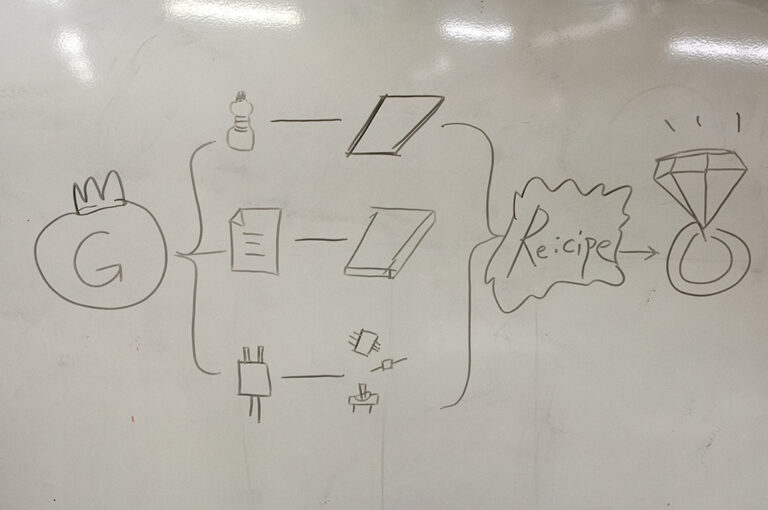 G
Reicipe